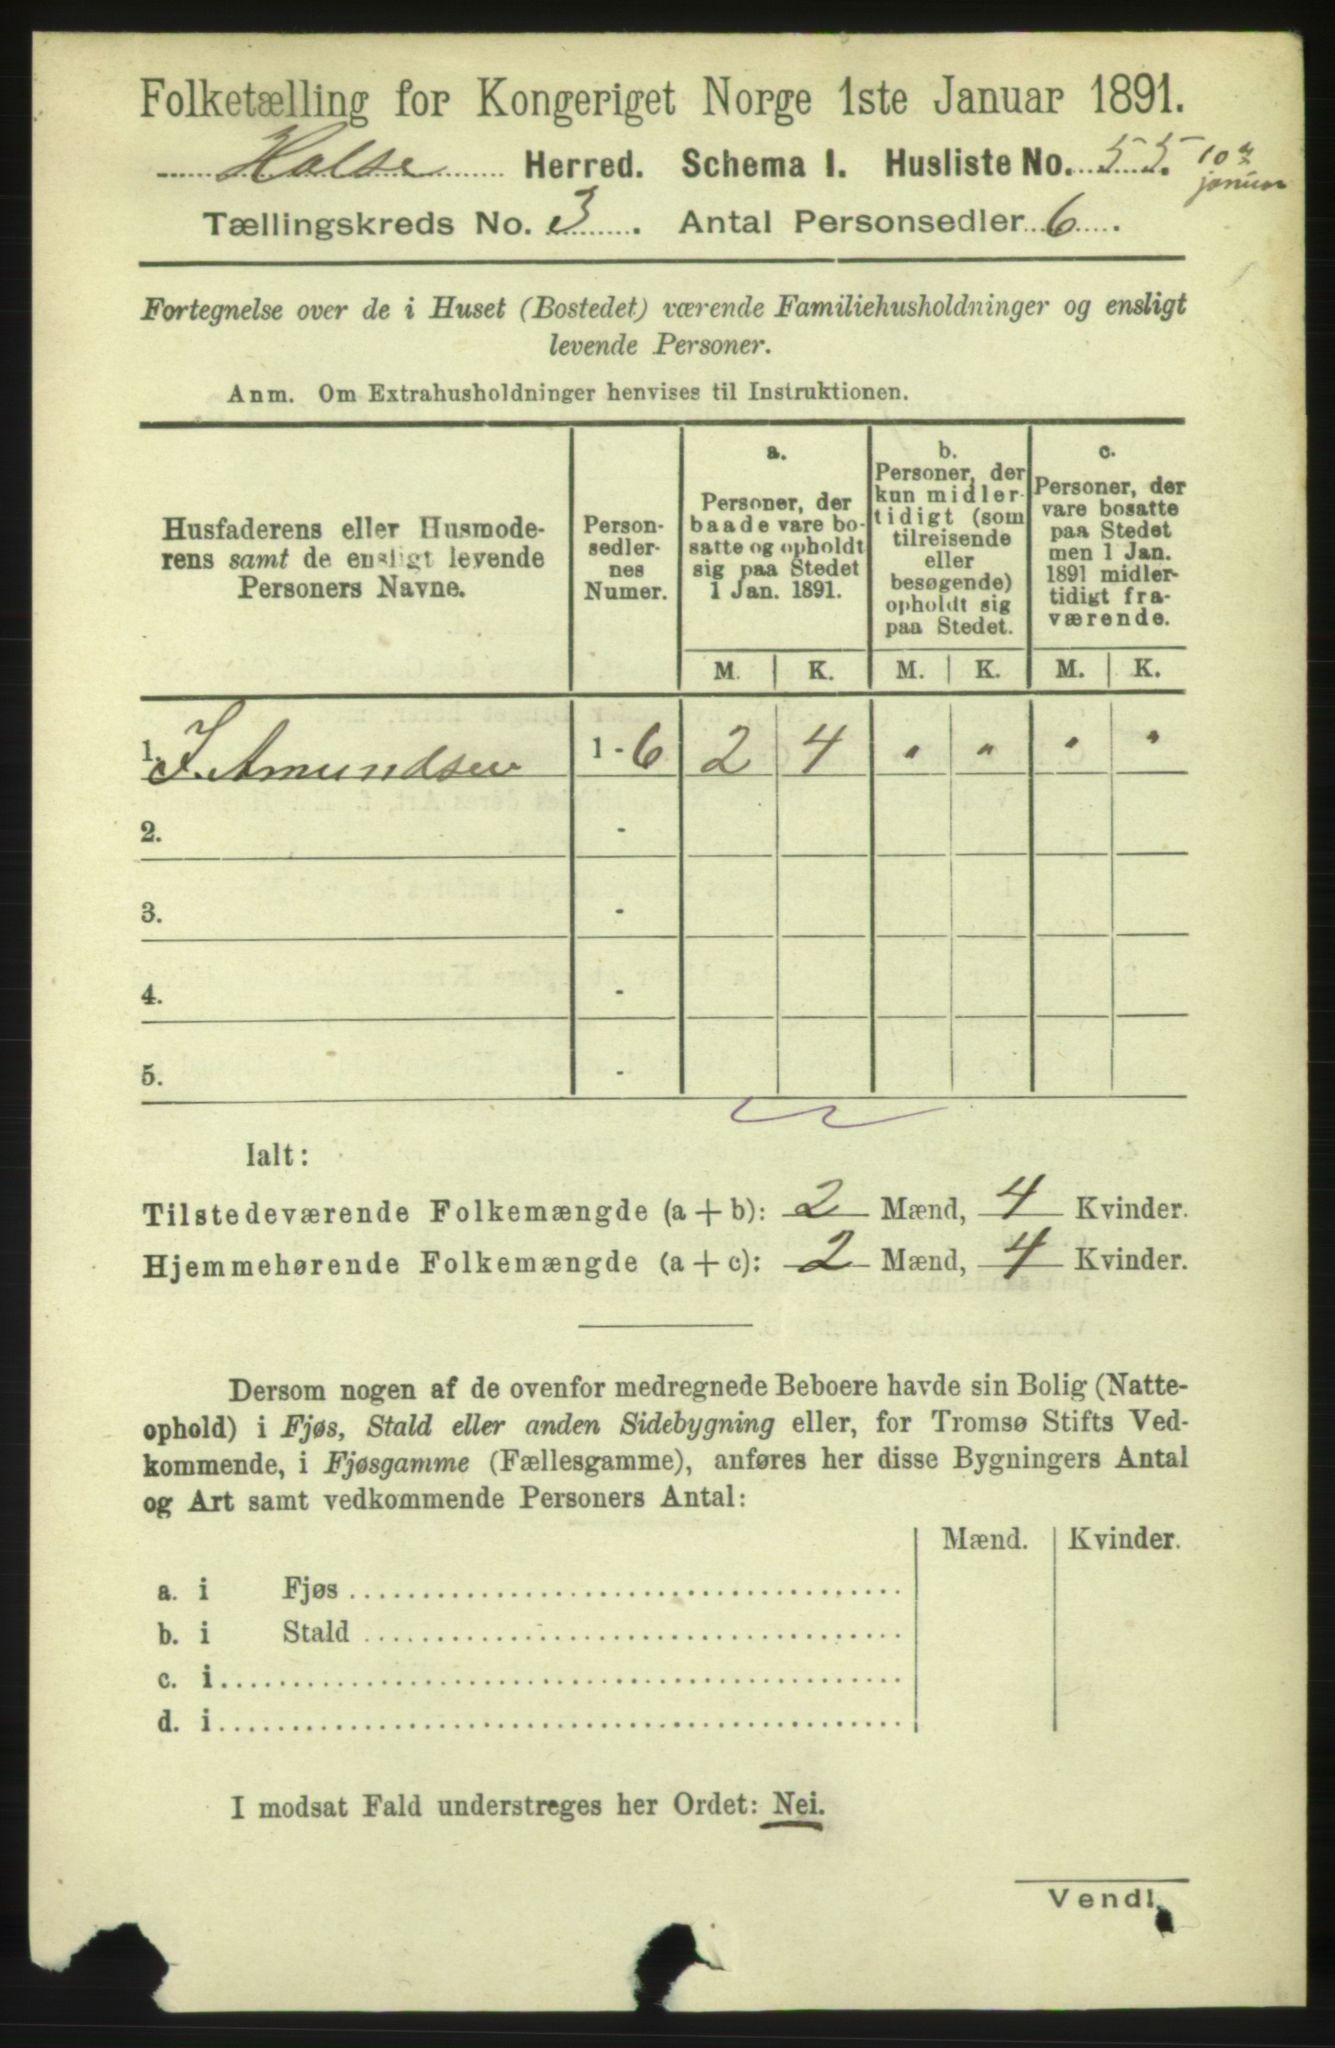 Folketælling for Kongeriget Norge 1ste Januar 1891.
Halse Herred. Schema I. Husliste No. 55. 10de
januar
Tællingskreds No. 3. Antal Personsedler 6.
Fortegnelse over de i Huset (Bostedet) værende Familiehusholdninger og ensligt
levende Personer.
Anm. Om Extrahusholdninger henvises til Instruktionen.
Husfaderens eller Husmode-
rens samt de ensligt levende
Personers Navne.
Person-
sedler-
nes
Numer.
a.
Personer, der
baade vare bo-
satte og opholdt
sig paa Stedet
1 Jan. 1891.
b.
Personer, der
kun midler-
tidigt (som
tilreisende
eller
besøgende)
opholdt sig
paa Stedet.
c.
Personer, der
vare bosatte
paa Stedet
men 1 Jan.
1891 midler-
tidigt fra-
værende.
M. K. M. K. M. K.
1. J. Amundsen 1 - 6 2 4 " " " "
2. -
3. -
4. -
5. -
Ialt:
Tilstedeværende Folkemængde (a + b): 2 Mænd, 4 Kvinder.
Hjemmehørende Folkemængde (a + c): 2 Mænd, 4 Kvinder.
Dersom nogen af de ovenfor medregnede Beboere havde sin Bolig (Natte-
ophold) i Fjøs, Stald eller anden Sidebygning eller, for Tromsø Stifts Ved-
kommende, i Fjøsgamme (Fællesgamme), anføres her disse Bygningers Antal
og Art samt vedkommende Personers Antal:
Mænd. Kvinder.
a. i Fjøs
b. i Stald
c. i
d. i
I modsat Fald understreges her Ordet: Nei.
Vend!